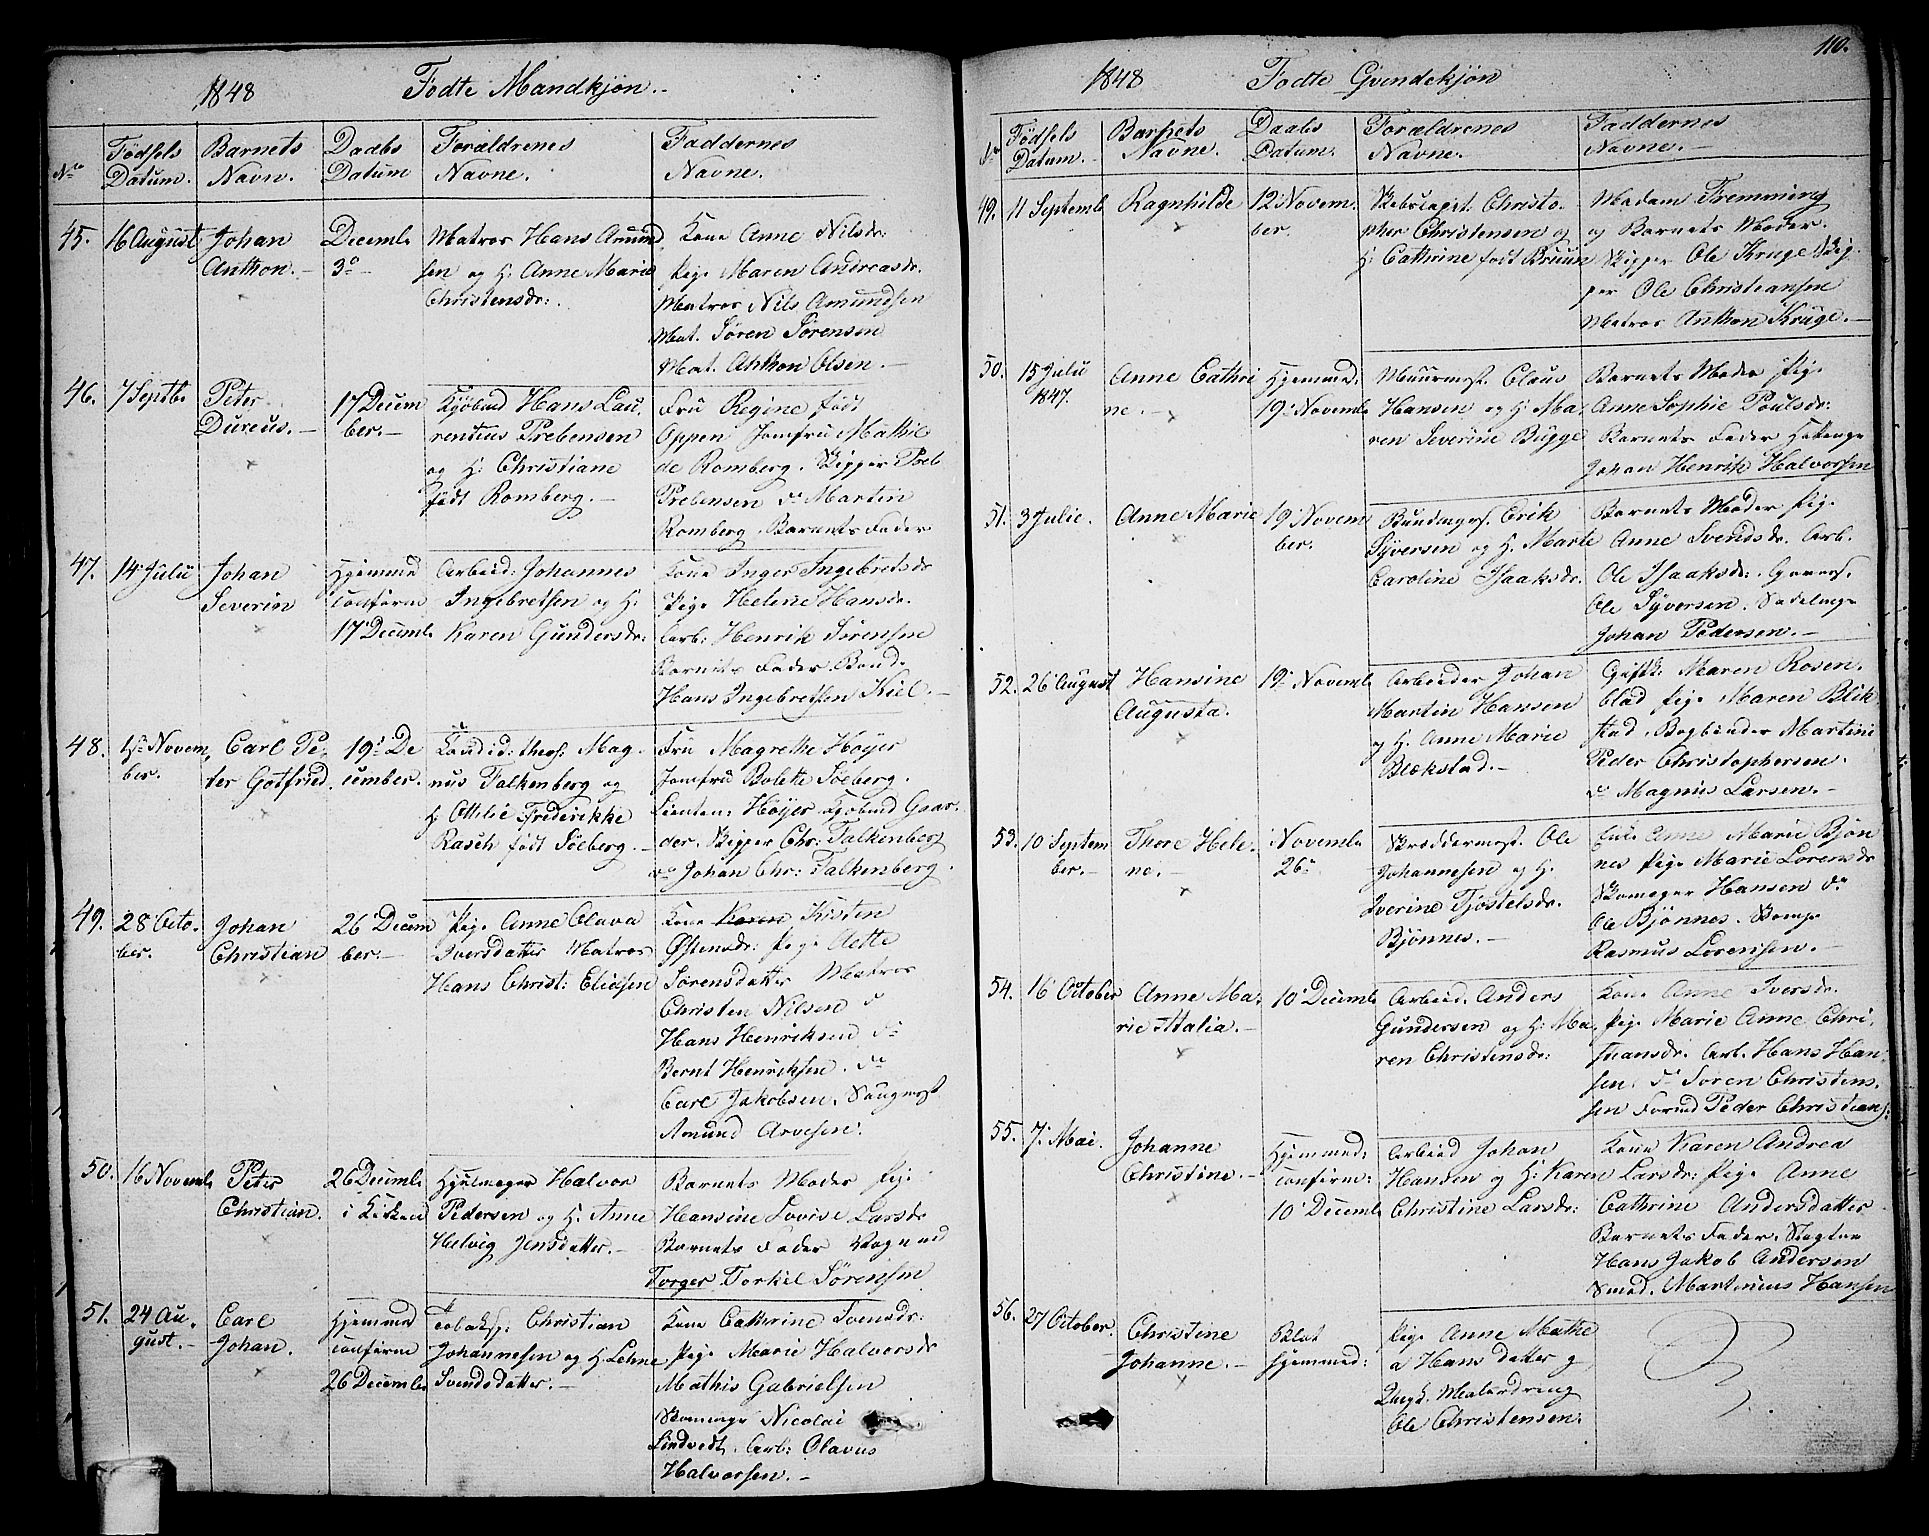 110.
1848 Födte Mandkjøn.
No Födsels Datum. Barnets Navn. Daabs Datum Forældrenes Navne. Faddernes Navne.
45. 16 August Johan Anthon. Decemb 3
Matros Hans Amund
sen og H. Anne Marie
Christensdr:
Kone Anne Nilsdr:
Pige Maren Andreasdr.
Matros Nils Amundsen
Mat. Søren Sörensen
Mat. Anthon Olsen.
46. 7 Septb Peter Dureus. 17 Decem ber.
Kjøbmd Hans Lau
rentius Prebensen
og H: Christiane
født Romberg.
Fru Regine født
Oppen Jomfru Mathil
de Romberg. Skipper Preb
Prebensen do Martin
Romberg. Barnets Fader
47. 14 Julii Johan Severin Hjemme confirm 17 Decemb
Arbeid: Johannes
Ingebretsen og H.
Karen Gundersdr:
Kone Inger Ingebretsdr
Pige Helene Hansdr.
Arb: Henrik Sörensen
Barnets Fader.
Hans Ingebretsen Kiel.
48. 1 Novem ber. Carl Pe ter Gotfried. 19 De cember.
Candid: theol. Mag
nus Falkenberg og
H. Ottilie Frederikke
Rasch født Söeberg.
Fru Magrethe Höyer
Jomfru Bolette Söeberg.
Lieuten: Höyer Kjøbmd Gaar
der. Skipper Chr: Falkenberg
do Johan Chr: Falkenberg.
49. 28 Octo ber. Johan Christian 26 Decem ber.
Pige Anne Olava
Iversdatter Matros
Hans Christ: Eliasen
Kone Karen Kisten
Østensdr: Pige Aette
Sørensdatter Matros
Christen Nilsen d
Hans Henriksen do
Bernt Henriksen. do
Carl Jakobsen. Saugmest
Amund Arvesen.
50. 16 Novemb Peter Christian. 26 Decemb i Kirken
Hjulmager Halvor
Pedersen og H. Anne
Helvig Jensdatter.
Barnets Moder Pige
Hansine Lovise Larsdr
Barnets Fader
Torger Torkil Sörensen
51. 24 Au gust. Carl Johan. Hjemmed confirm 26 Decemb
Tobaksp: Christian
Johannesen og H. Lehne
Svendsdatter.
Kone Cathrine Svensdr:
Pige Marie Halvorsdr
Mathis Gabrielsen
Skomage Nicolai
Lindvedt. Arb: Olavus
Halvorsen.
1848 Födte Qvindekjön
No Födsels Datum. Barnets Navne. Daabs Datum. Forældrenes Navne. Faddernes Navne.
49. 11 Septemb Ragnhilde 12 Novem ber.
Skibscapt: Christo
pher Christensen og
H. Cathrine født Bruun
Madam Fremming
og Barnets Moder.
Skipper Ole Kruge Skip
per Ole Christiansen
Matros Anthon Kruge.
50. 15 Julii 1847. Anne Cathri ne. Hjemmed: 19 Novemb
Muurmest. Claus
Hansen og H. Ma
ren Severine Bugge
Barnets Moder Pige
Anne Sophie Poulsdr:
Barnets Fader
Johan Henrik Halvorsen
51. 3 Julie. Anne Marie 19 Novem ber.
Bundmagers. Erik
Syversen og H. Marte
Caroline Isaaksdr.
Barnets Moder Pige
Anne Svendsdr. Arb.
Ole Isaaksdr:
Ole Syversen. Sadelmage
Johan Pedersen.
52. 26 August Hansine Augusta. 19 Novemb
Arbeider Johan
Martin Hansen
og H. Anne Marie
Blækstad.
Gift: Maren Rosen
blad Pige Maren Blik
stad. Bogbinder Martini
Peder Christophersen.
do Magnus Larsen.
53. 10 Septem ber. Thore Hele ne. Novemb 26
Skræddermest. Ole
Johannesen og H.
Iverine Tjøstelsdr.
Bjønnes.
Anne Marie Bjön
nes Pige Marie Lorensdr
Skomager Hansen do
Ole Bjønnes. Skomge
Rasmus Lorensen.
54. 16 October Anne Ma rie Atalia. 10 Decemb
Arbeid. Anders
Gundersen og H: Ma
ren Christensdr:
Kone Anne Iversdr.
Pige Marie Anne Chri
stiansdr. Arb. Hans Han
sen. do Soren Christen
sen Formd Peder Christians.
55. 7 Mai. Johanne Christine. Hjemmed: confirm: 10 Decemb
Arbeid Johan
Hansen og H: Karen
Christine Larsdr:
Kone Karen Andrea
Larsdr: Pige Anne
Cathrine Andersdatter
Barnets Fader. Slagter
Hans Jakob Andersen
Smed. Martinius Hansen
56. 27 October. Christine Johanne. Blot Hjemmed:
Pige Anne Mathe
a Hansdatter og
Ungk. Malerdreng
Ole Christensen.